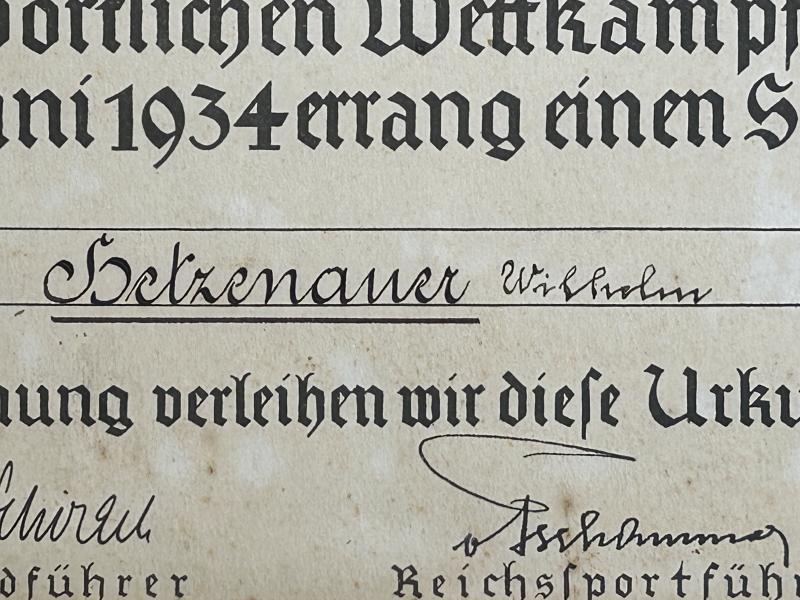 portlichen Wettkampf
uni 1934 errang einen S
Hetzenauer Wilhelm
nung verleihen wir diese Urku
Schirach
v Tschammer
dführer Reichssportführ